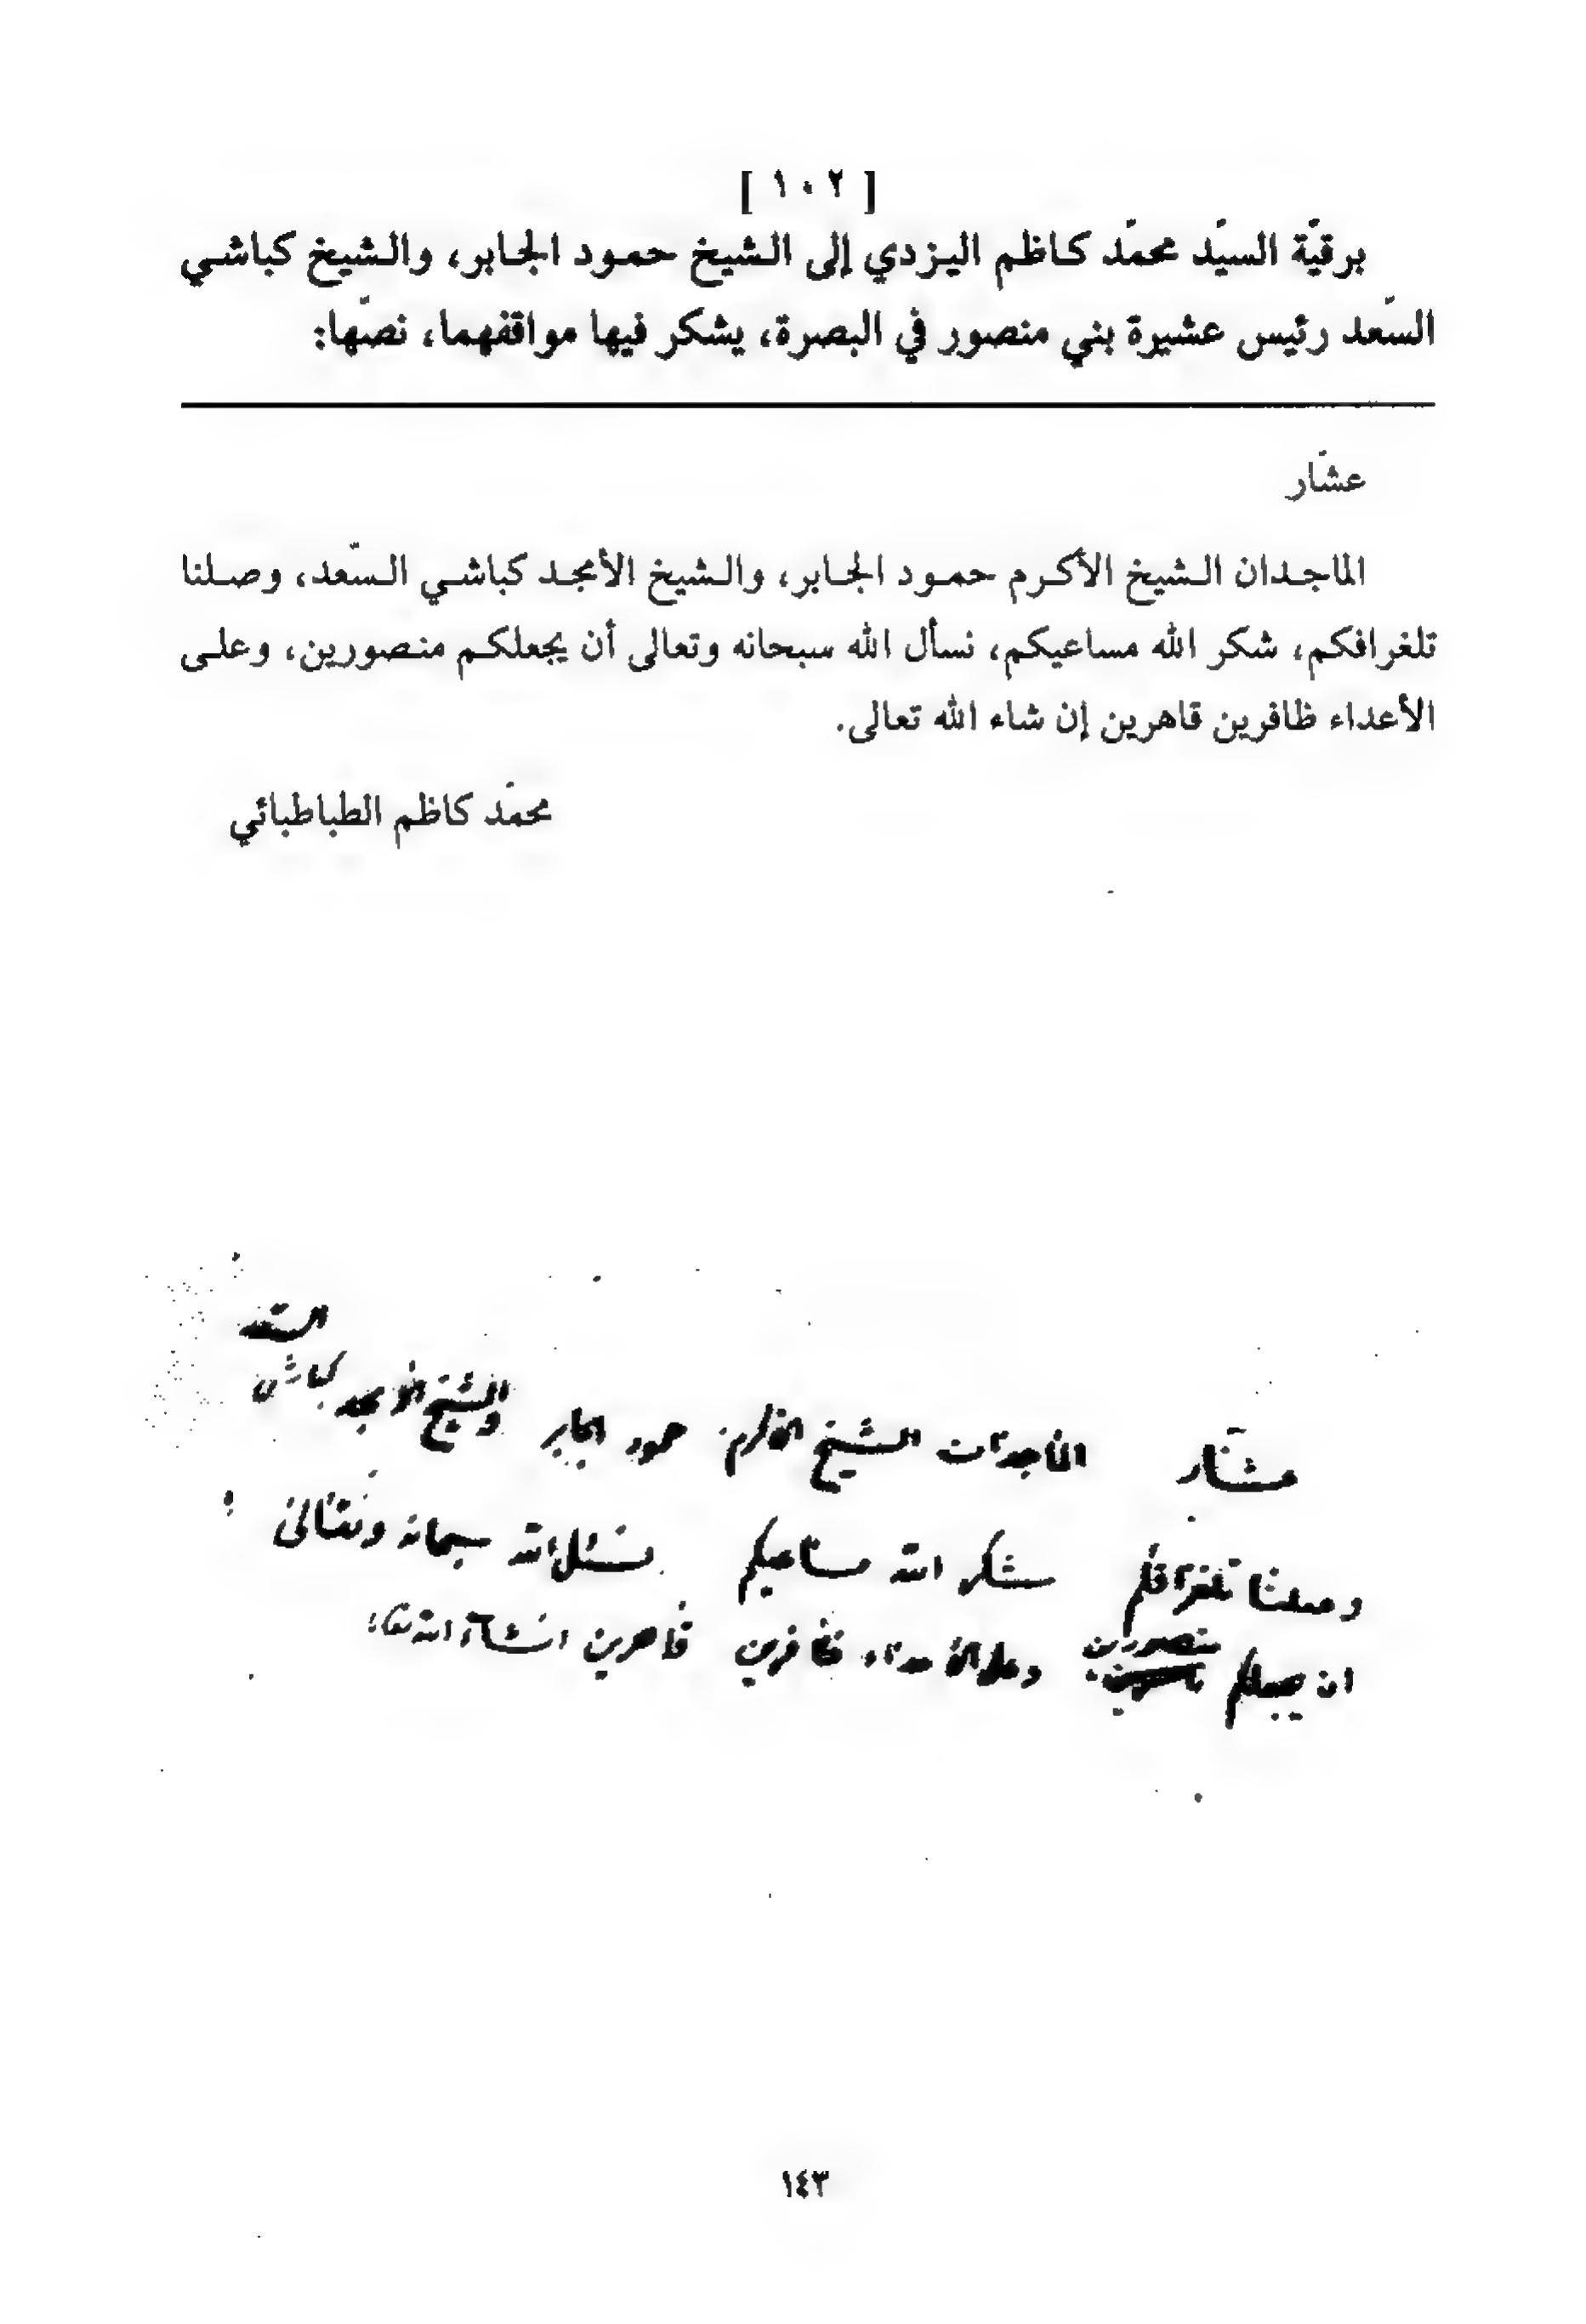 [ ١٠٢ ]
برقيّة السيّد محمّد كاظم اليزدي إلى الشيخ حمود الجابر، والشيخ كباشي
السّعد رئيس عشيرة بني منصور في البصرة، يشكر فيها مواقفهما، نصّها:
عشّار
الماجدان الشيخ الأكرم حمود الجابر، والشيخ الأمجد كباشي السّعد، وصلنا
تلغرافكم، شكر الله مساعيكم، نسأل الله سبحانه وتعالى أن يجعلكم منصورين، وعلى
الأعداء ظافرين قاهرين إن شاء الله تعالى.
محمّد كاظم الطباطبائي
السّعد
عشّار الماجدان الشيخ الاكرم حمود الجابر والشيخ الأمجد كباشي
وصلنا تلغرافكم شكر الله مساعيكم نسئل الله سبحانه وتعالى
منصورين
ان يجعلكم وعلى الأعداء ظافرين قاهرين انشاء الله
١٤٣